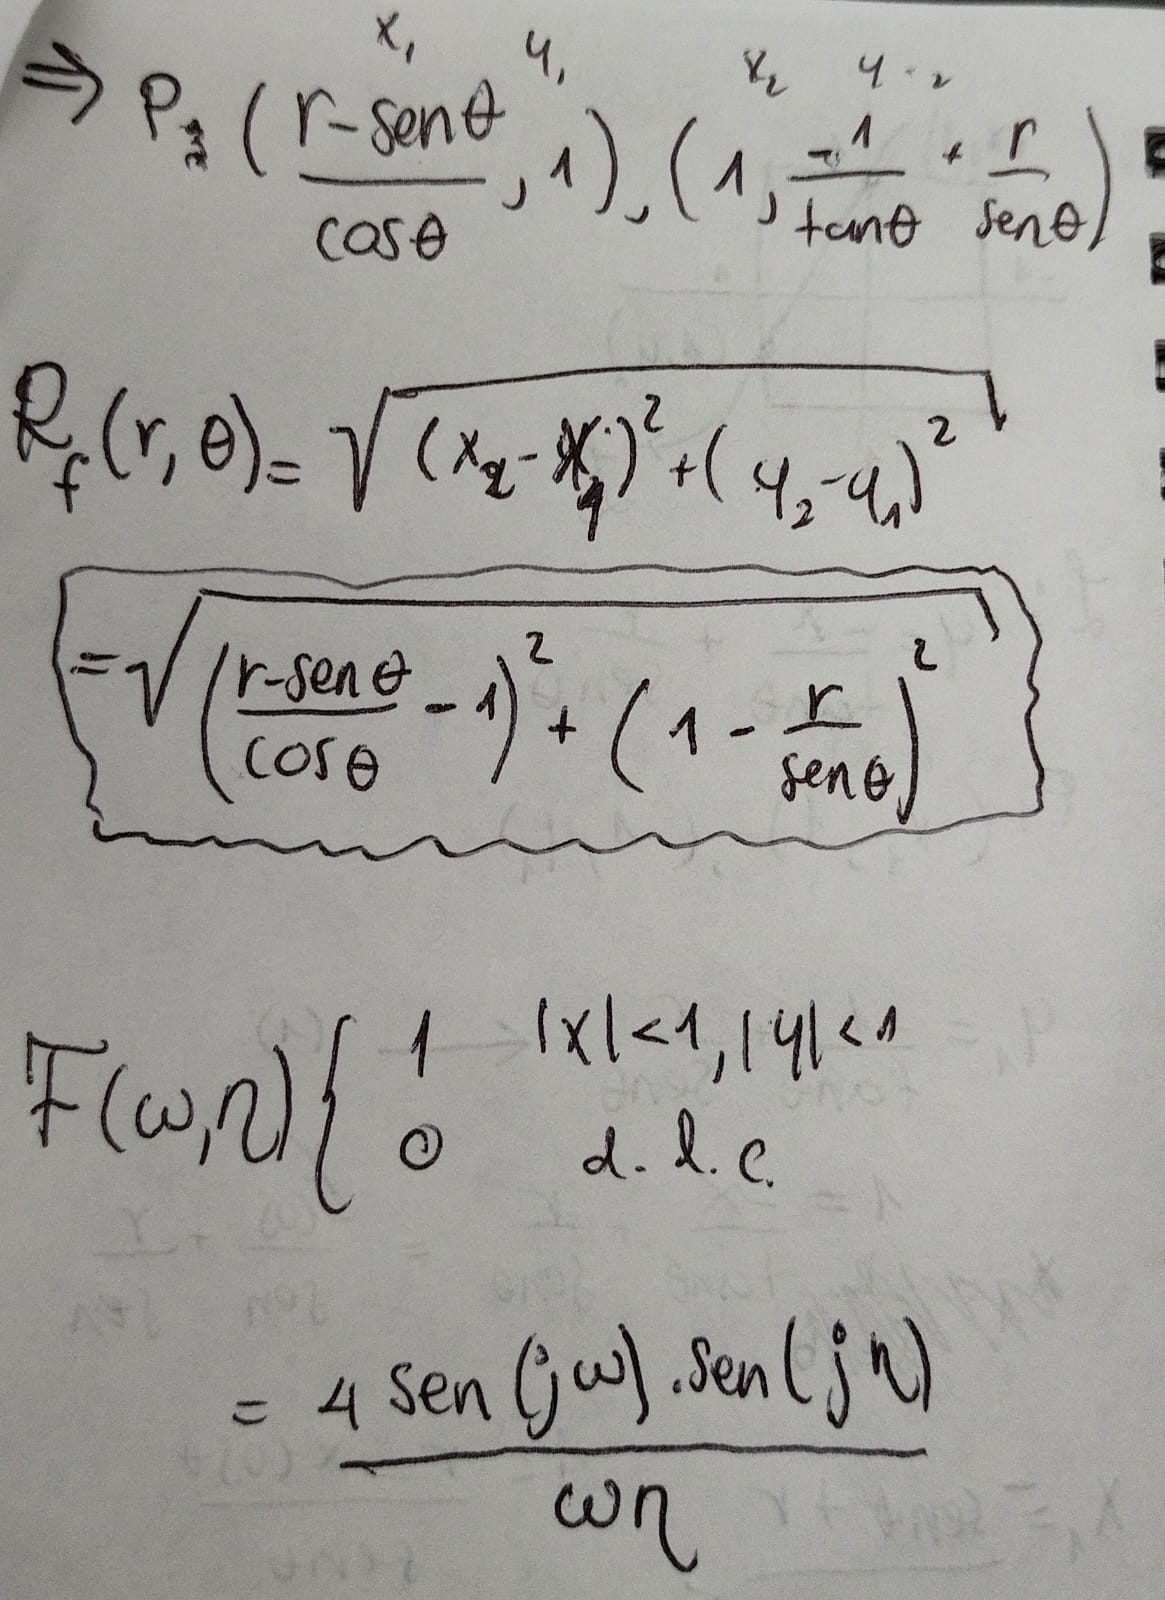 x₁ y₁ x₂ y₂
⇒ P₂ ( (r-senθ)/cosθ , 1 ), ( 1, -1/tanθ + r/senθ )
R_f(r, θ) = √( (x₂-x₁)² + (y₂-y₁)² )
= √( ( (r-senθ)/cosθ - 1 )² + ( 1 - r/senθ )² )
F(ω,η) { 1 |x|<1, |y|<1
0 d.l.c.
= 4 sen(jω).sen(jη) / ωη